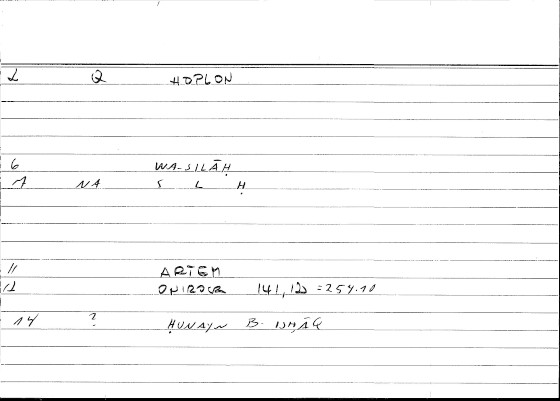 2 Q HOPLON
6 WA-SILĀḤ
7 NA S L Ḥ
11 ARTEM
12 ONIROCR 141,12 = 254.10
14 ? ḤUNAYN B. ISḤĀQ